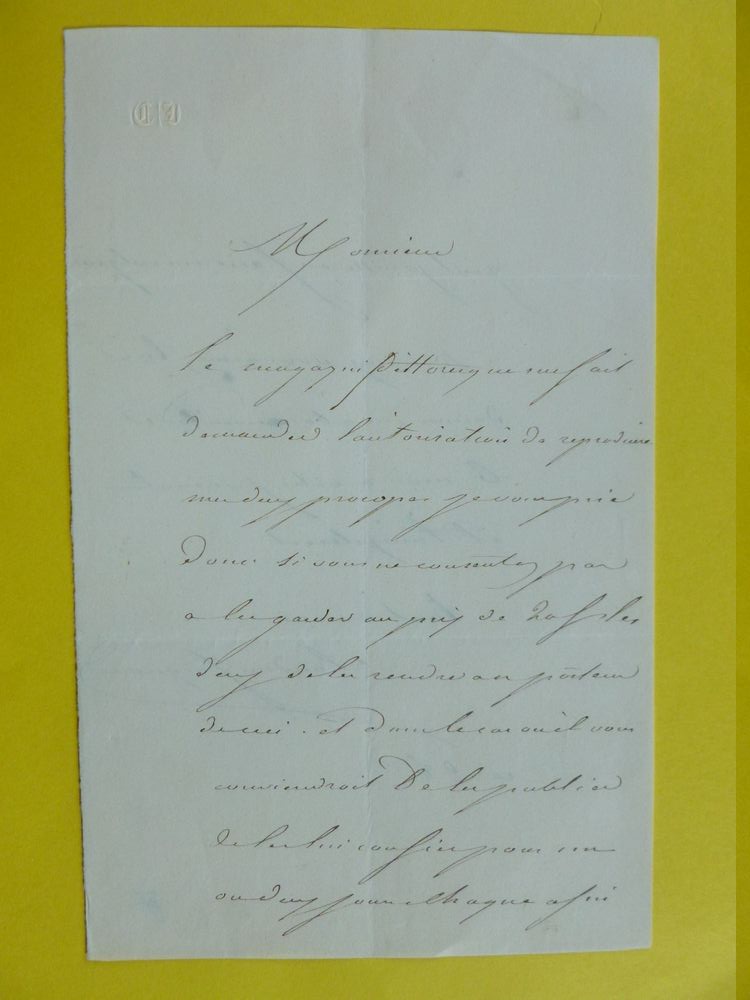 Monsieur
Le magazin Pittoresque me fait
demander l'autorisation de reproduire
mes deux je vous prie
donc si vous ne consentez pas
a les garder au prix de les
deux de les rendre au porteur
de ceci . et dans le cas où il vous
conviendroit De les publier
de les lui confier pour un
ou deux jours chaque afin